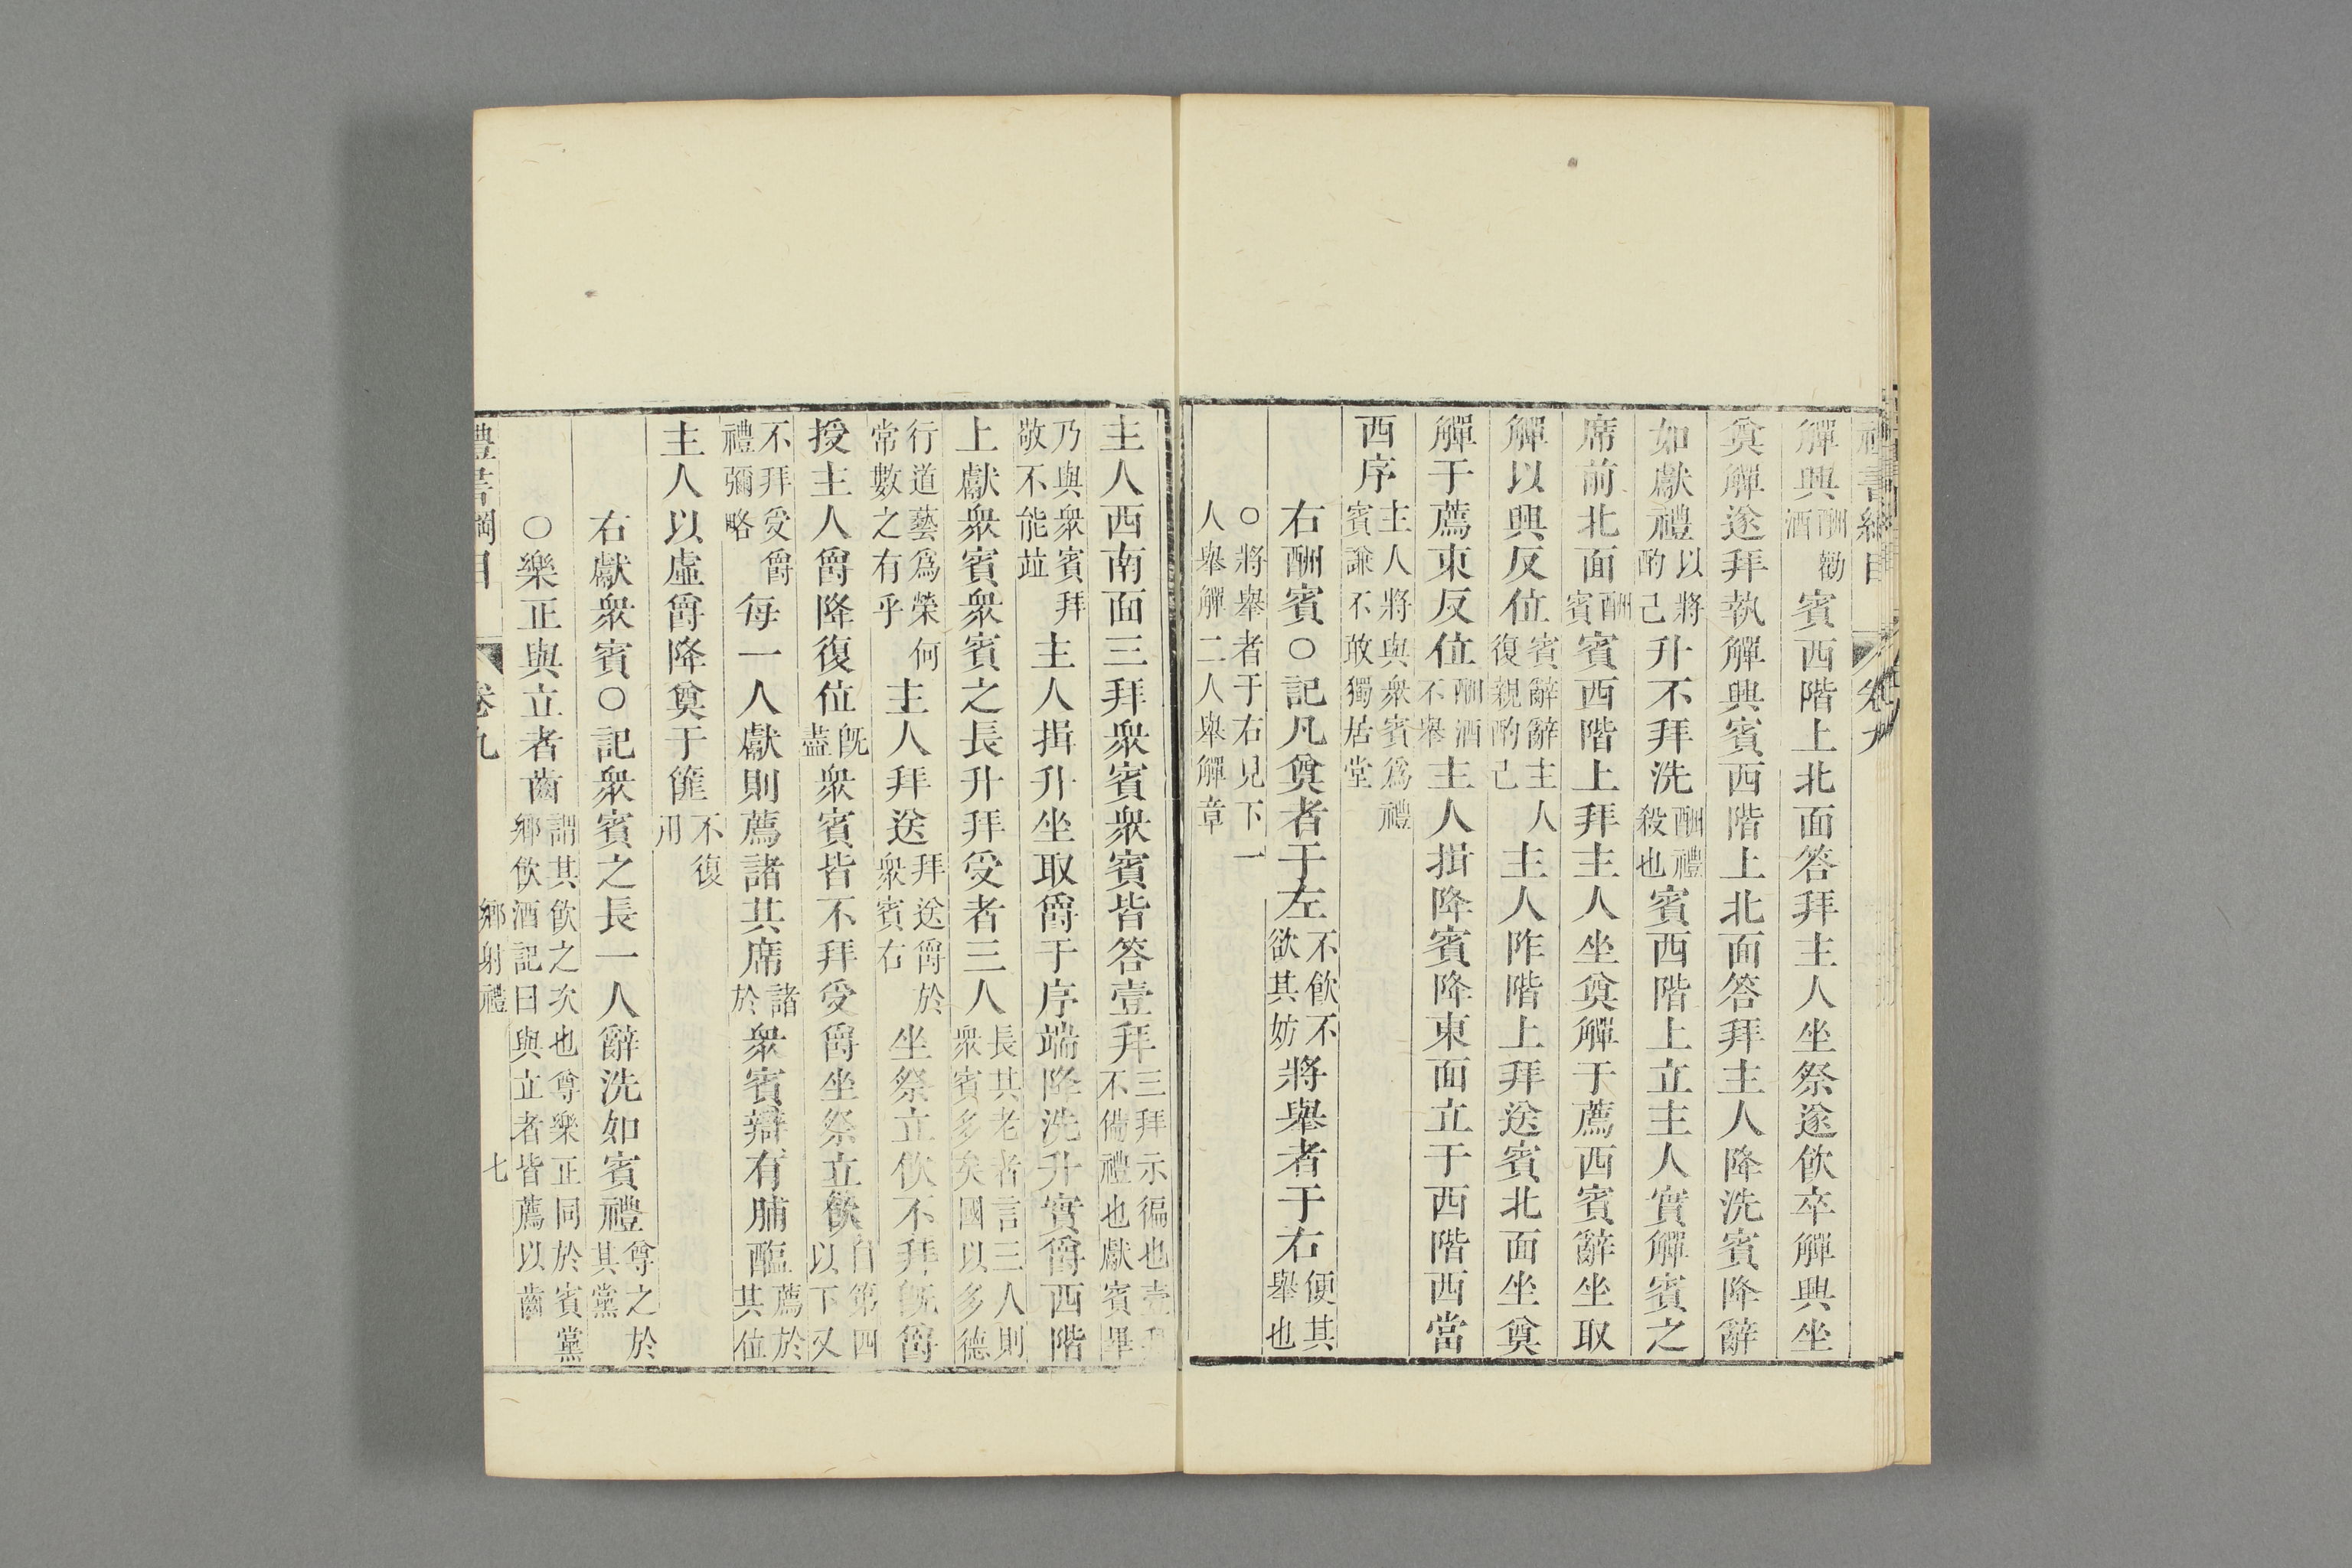 禮書綱目 卷九
觶興酬勸酒賓西階上北面答拜主人坐祭遂飲卒觶興坐
奠觶遂拜執觶興賓西階上北面答拜主人降洗賓降辭
如獻禮以將酌己升不拜洗酬禮殺也賓西階上立主人實觶賓之
席前北面酬賓賓西階上拜主人坐奠觶于薦西賓辭坐取
觶以興反位賓辭辭主人復親酌己主人阼階上拜送賓北面坐奠
觶于薦東反位酬酒不舉主人揖降賓降東面立于西階西當
西序主人將與衆賓爲禮賓謙不敢獨居堂
右酬賓○記凡奠者于左不飲不欲其妨將舉者于右便其舉也
○將舉者于右見下一人舉觶二人舉觶章
主人西南面三拜衆賓衆賓皆答壹拜三拜示徧也壹拜不備禮也獻賓畢
乃與衆賓拜敬不能竝主人揖升坐取爵于序端降洗升實爵西階
上獻衆賓衆賓之長升拜受者三人長其老者言三人則衆賓多矣國以多德
行道藝爲榮何常數之有乎主人拜送拜送爵於衆賓右坐祭立飲不拜旣爵
授主人爵降復位旣盡衆賓皆不拜受爵坐祭立飲自第四以下又
不拜受爵禮彌略每一人獻則薦諸其席諸於衆賓辯有脯醢薦於其位
主人以虛爵降奠于篚不復用
右獻衆賓○記衆賓之長一人辭洗如賓禮尊之於其黨
○樂正與立者齒謂其飲之次也尊樂正同於賓黨鄉飲酒記曰與立者皆薦以齒
禮書綱目 卷九 鄉射禮 七